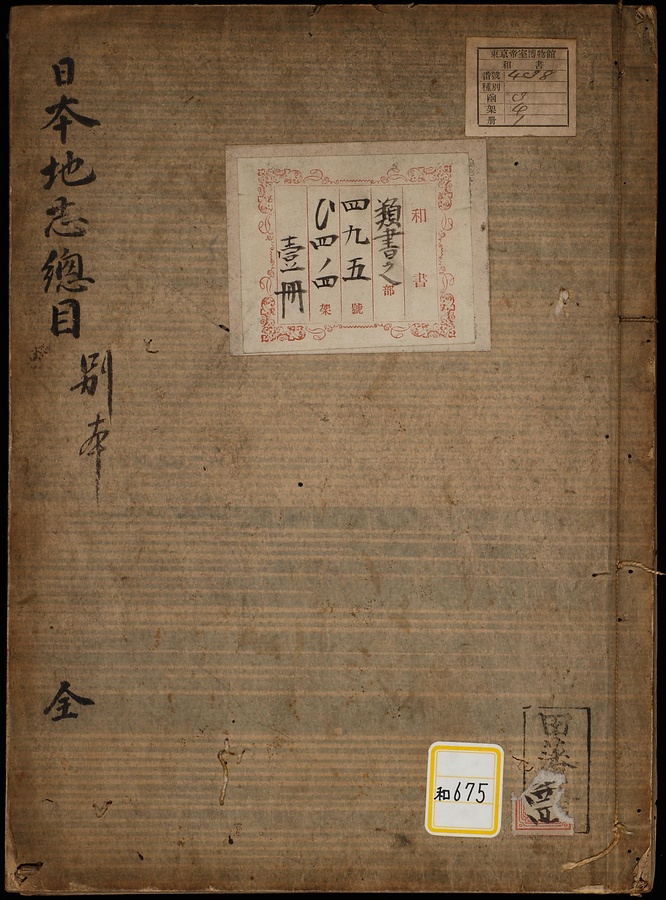 日本地志總目
別本
全
東京帝室博物館
和書
番號 498
種別
函 3
架 4
册 1
和書
類書之部
四九五號
ひ四ノ四架
壹冊
和675
田藩